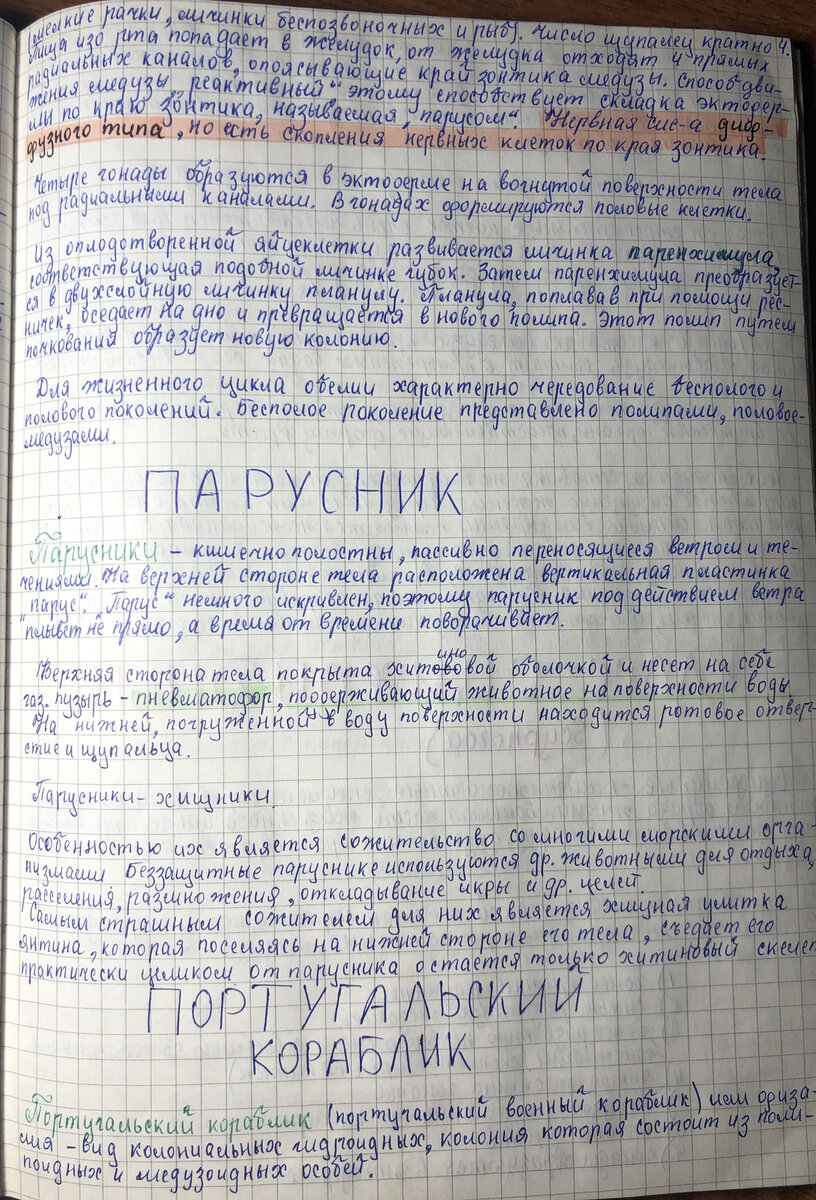 (мелкие рачки, личинки беспозвоночных и рыб). Число щупалец кратно 4.
Пища изо рта попадает в желудок, от желудка отходят 4 прямых
радиальных каналов, опоясывающие край зонтика медузы. Способ дви-
жения медузы „реактивный“ этому способствует складка эктодер-
мы по краю зонтика, называемая „парусом“. Нервная сис-а диф-
фузного типа, но есть скопления нервных клеток по края зонтика.
Четыре гонады образуются в эктодерме на вогнутой поверхности тела
под радиальными каналами. В гонадах формируются половые клетки.
Из оплодотворенной яйцеклетки развивается личинка паренхимула,
соответствующая подобной личинке губок. Затем паренхимула преобразует-
ся в двухслойную личинку планулу. Планула, поплавав при помощи рес-
ничек, оседает на дно и превращается в нового полипа. Этот полип путем
почкования образует новую колонию.
Для жизненного цикла обелии характерно чередование бесполого и
полового поколений. Бесполое поколение представлено полипами, половое-
медузами.
ПАРУСНИК
Парусники – кишечно полостны, пассивно переносящиеся ветром и те-
чениями. На верхней стороне тела расположена вертикальная пластинка
„парус“. „Парус“ немного искривлен, поэтому парусник под действием ветра
плывет не прямо, а время от времени поворачивает.
Верхняя сторона тела покрыта хитиновой оболочкой и несет на себе
газ. пузырь – пневматофор, поддерживающий животное на поверхности воды.
На нижней, погруженной в воду поверхности находится ротовое отвер-
стие и щупальца.
Парусники – хищники.
Особенностью их является сожительство со многими морскими орга-
низмами Беззащитные паруснике используются др. животными для отдыха,
расселения, размножения, откладывание икры и др. целей.
Самым страшным сожителем для них является хищная улитка
янтина, которая поселяясь на нижней стороне его тела, съедает его
практически целиком от парусника остается только хитиновый скелет
ПОРТУГАЛЬСКИЙ
КОРАБЛИК
Португальский кораблик (португальский военный кораблик) или физа-
лия – вид колониальных гидроидных, колония которая состоит из поли-
поидных и медузоидных особей.